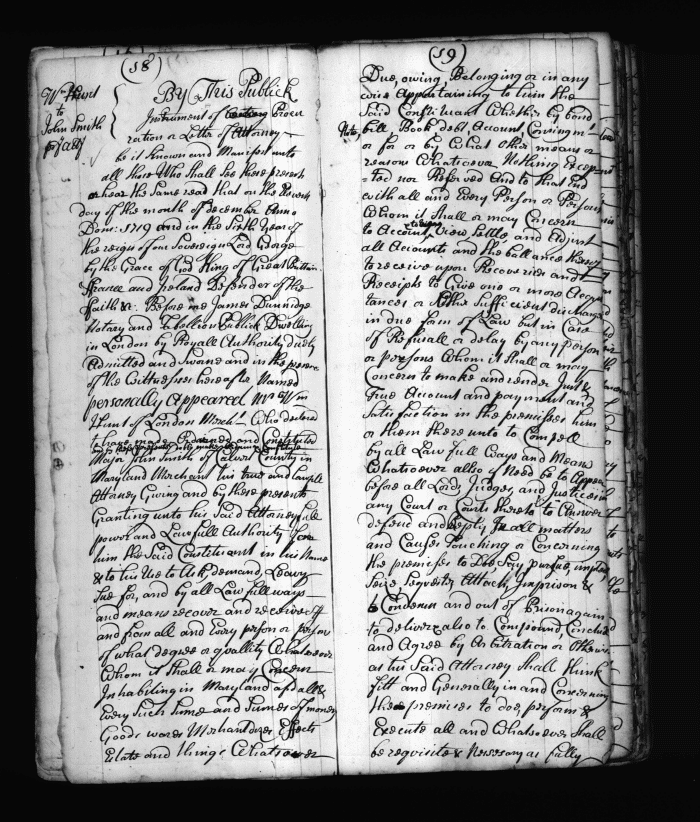 (58)
Wm Hunt
to
John Smith
By This Publick
Instrument of Procu
ration or Letter of Attorney
be it known and Manifest unto
all those Who Shall See these presents
or hear the Same read that on the
day of the month of December Anno
Dom: 1719 and in the Sixth Year of
the reign of our Sovereign Lord George
by the Grace of God King of Great Brittain
France and Ireland Defender of the
Faith &c. Before me James Dunnidge
Notary and Tabellion Publick Dwelling
in London by Royall Authority duely
Admitted and Sworne and in the presence
of the Wittnesses hereafter Named
personally Appeared Mr Wm
Hunt of London Mercht Who declared
to have made Ordained and Constituted
and by these presents doth make
Major John Smith of Calvert County in
Maryland Merchant his true and Lawfull
Attorney Giving and by these presents
Granting unto his Said Attorney full
power and Lawfull Authority for
him the Said Constituant in his Name
& to his Use to Ask, demand, Leavy
Sue for, and by all Lawfull ways
and means recover and receive of
and from all and Every person or persons
of what degree or quallity Whatsoever
Whom it shall or may Concern
Inhabiting in Maryland afsd all &
Every Such Sume and Sumes of money
Goods wares Merchandizes Effects
Estate and things Whatsoever
(59)
Due, owing, Belonging or in any
wise Appertaining to him the
Said Constituant Whether by bond
bill Book debt Account Consignmt
or for or by What other means or
reasons Whatsoever Nothing Except
ted nor Reserved And to that End
with all and Every Person or Persons
Whom it Shall or may Concern
to Account, View Settle and Adjust
all Accounts and the ballance thereof
to receive upon Recoveries and
Receipts to Give one or more Acquit
tances or other Sufficient discharges
in due form of Law but in Case
of Refusall or delay by any person
or persons Whom it Shall or may
Concern to make and render Just &
True Account and payment and
Satisfaction in the premisses him
or them there unto to Compell
by all Law full Ways and Means
Whatsoever also if Need be to Appear
before all Lords Judges and Justices in
any Court or Courts there to Answer
defend and reply In all matters
and Causes Touching or Concerning
the premisses to Doe, Say pursue, implead
Seize Sequester Attach Imprison &
to Condemn and out of Prison again
to deliver also to Compound Conclude
and Agree by Arbitration or Otherwise
as his Said Attorney Shall think
fitt and Generally in and Concerning
the premises to doe, perform &
Execute all and Whatsoever Shall
be requisite & Nessesary as fully